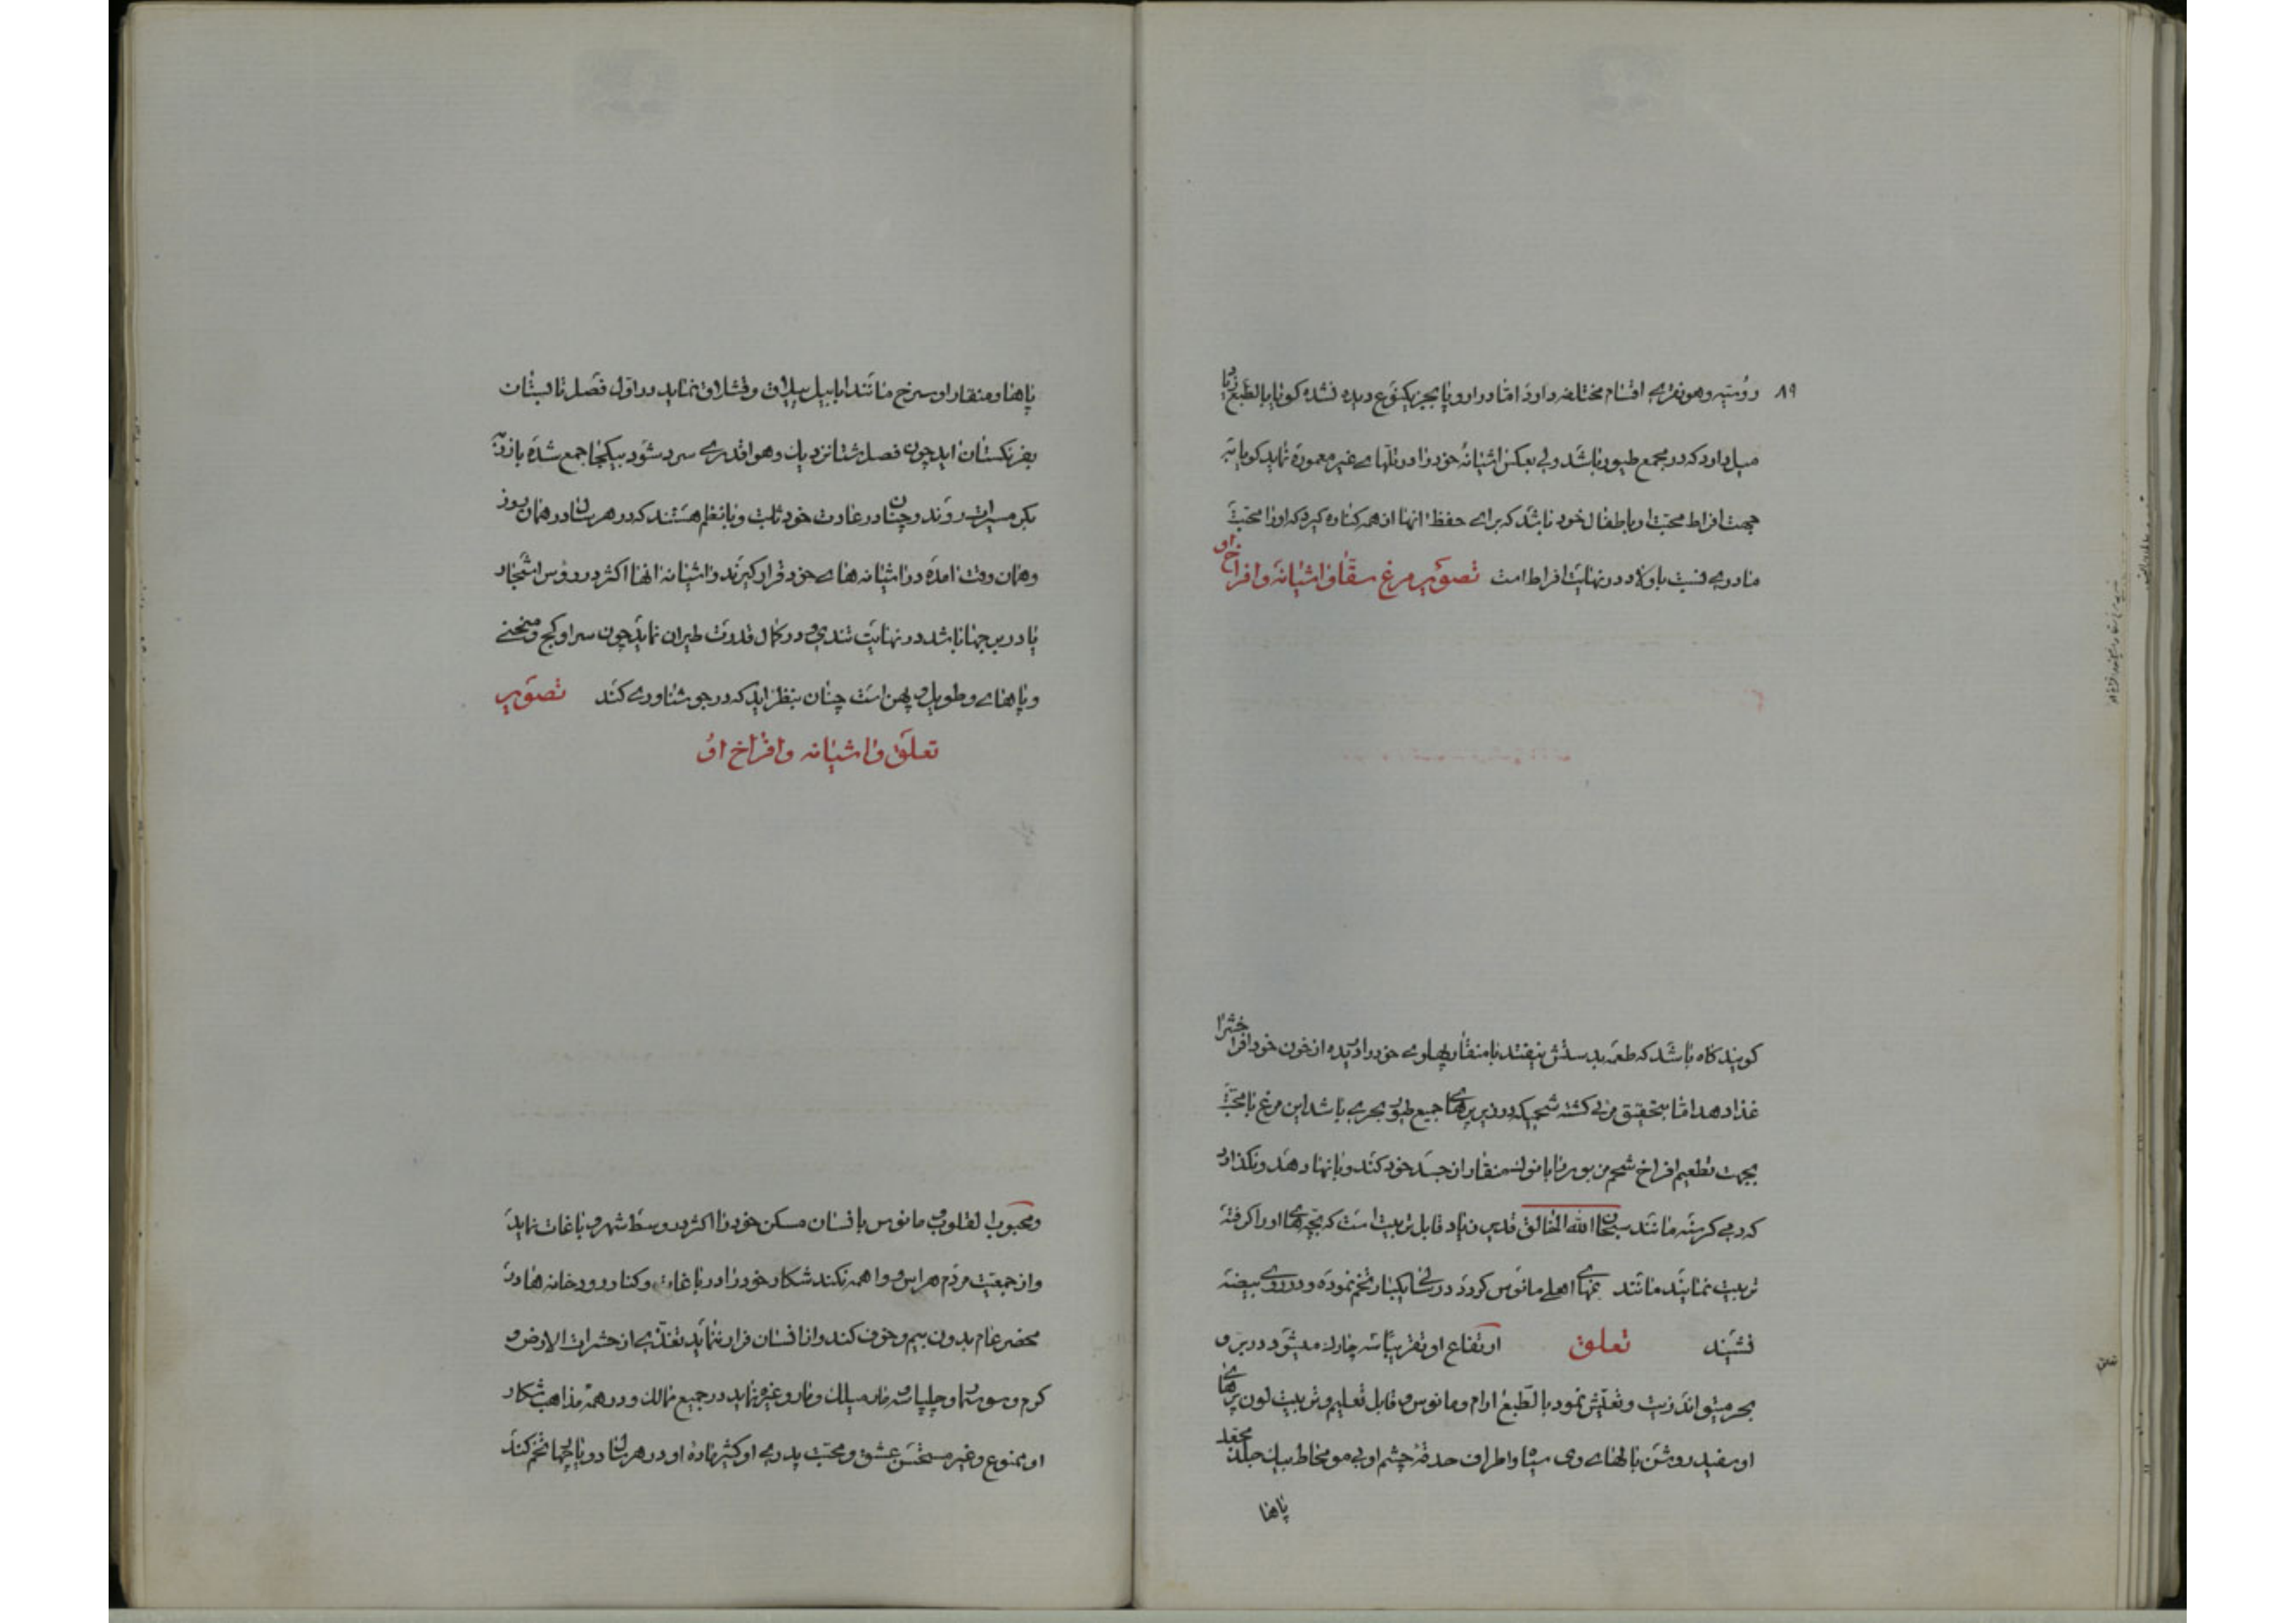 ۸۹
روسیه و هونغری اقسام مختلفه دارد اما در اروپا بجز یکنوع دیده نشده گویا بالطبع زیاد
میل دارد که در مجمع طیور باشد ولی بعکس اشیانه خود را در تلهای غیر معموره نماید گویا به
جهت افراط محبت او باطفال خود باشد که برای حفظ انها از همه کناره گیرد که او را محبت
مادری نسبت باولاد در نهایت افراط است تصویر مرغ سقا و اشیانه و افراخ او
گویند گاه باشد که طعمه بدستش نیفتد با منقار پهلوی خود را دریده از خون خود افراخش را
غذا دهد اما بتحقیق من پی گشته شحمیکه در زیر پرهای جمیع طیور بحری باشد این مرغ با محبت
بجهت تطعیم افراخ شحم مزبور را با نوک منقار از جسد خود کند و بانها دهد و نگذارد
که دمی گرسنه مانند سبحان الله الخالق قدیر زیاد قابل تربیت است که بچه های او را گرفته
تربیت نمایند مانند اهلی مانوس گردد در سالی یکبار تخم نموده و در روی بیضه
نشیند تعلق ارتفاع او تقریبا سه چارک میشود در بر و
بحر میتواند زیست و تعیش نمود بالطبع ارام و مانوس و قابل تعلیم و تربیت لون پرهای
او سفید روشن بالهای وی سیاه و اطراف حدقه چشم او بی مو محاط بیک جلد مجعد
پاها
پاها و منقار او سرخ مانند ابابیل ییلاق و قشلاق نماید در اول فصل تابستان
بفرنگستان اید چون فصل شتا نزدیک و هوا قدری سرد شود بیکجا جمع شده باز
بگرمسیرات روند و چنان در عادت خود ثابت و بانظم هستند که در هر سال در همان روز
و همان وقت امده در اشیانه های خود قرار گیرند و اشیانه انها اکثر در رؤس اشجار
یا در برجها باشد در نهایت تندی و در کمال قدرت طیران نماید چون سر او کج و منحنی
و پاهای و طویل و پهن است چنان بنظر اید که در جو شناوری کند تصویر
تعلق و اشیانه و افراخ او
و محبوب القلوب و مانوس بانسان مسکن خود را اکثر در وسط شهر و باغات نماید
و از جمعیت مردم هراس و واهمه نکند شکار خود را در باغات و کنار رودخانه ها در
محضر عام بدون بیم و خوف کند و از انسان فرار ننماید تغذی از حشرات الارض و
کرم و سوسمار و چلپاسه و مار و غیره نماید در جمیع ممالک و در همه مذاهب شکار
او ممنوع و غیر مستحسن عشق و محبت پدری او کثیر ماده او در هر سال دو یا تخم کند
تعلق